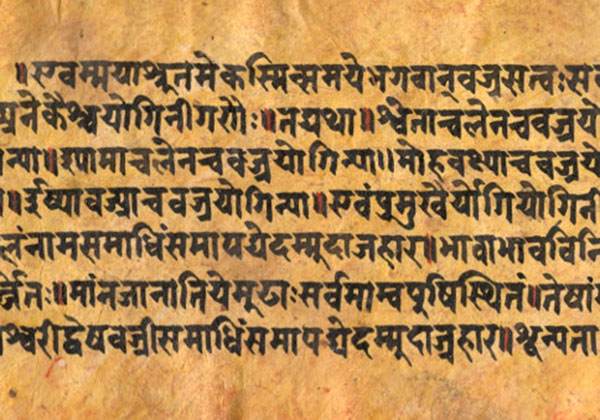 ॥एवम्मयाश्रुतमेकस्मिन्समयेभगवान्वज्रसत्वःस
नेकैश्चयोगिनीगणैः॥तद्यथा॥श्वेताचलेनचवज्रयो
न्या॥श्यामाचलेनचवज्रयोगिन्या॥मोहवज्र्याचवज्रयो
॥ईर्ष्यावज्र्याचवज्रयोगिन्या॥एवंप्रमुखैर्योगियोगिनी
लंनामसमाधिंसमापद्येदम्मुदाजहार॥भावाभावविनि
र्त्तितः॥मांनजानातियेमूढाःसर्वमाम्वपुषिस्थितं॥तेषां
श्वरीद्वेषवज्रीसमाधिंसमापद्येदम्मुदाजहार॥शून्यता